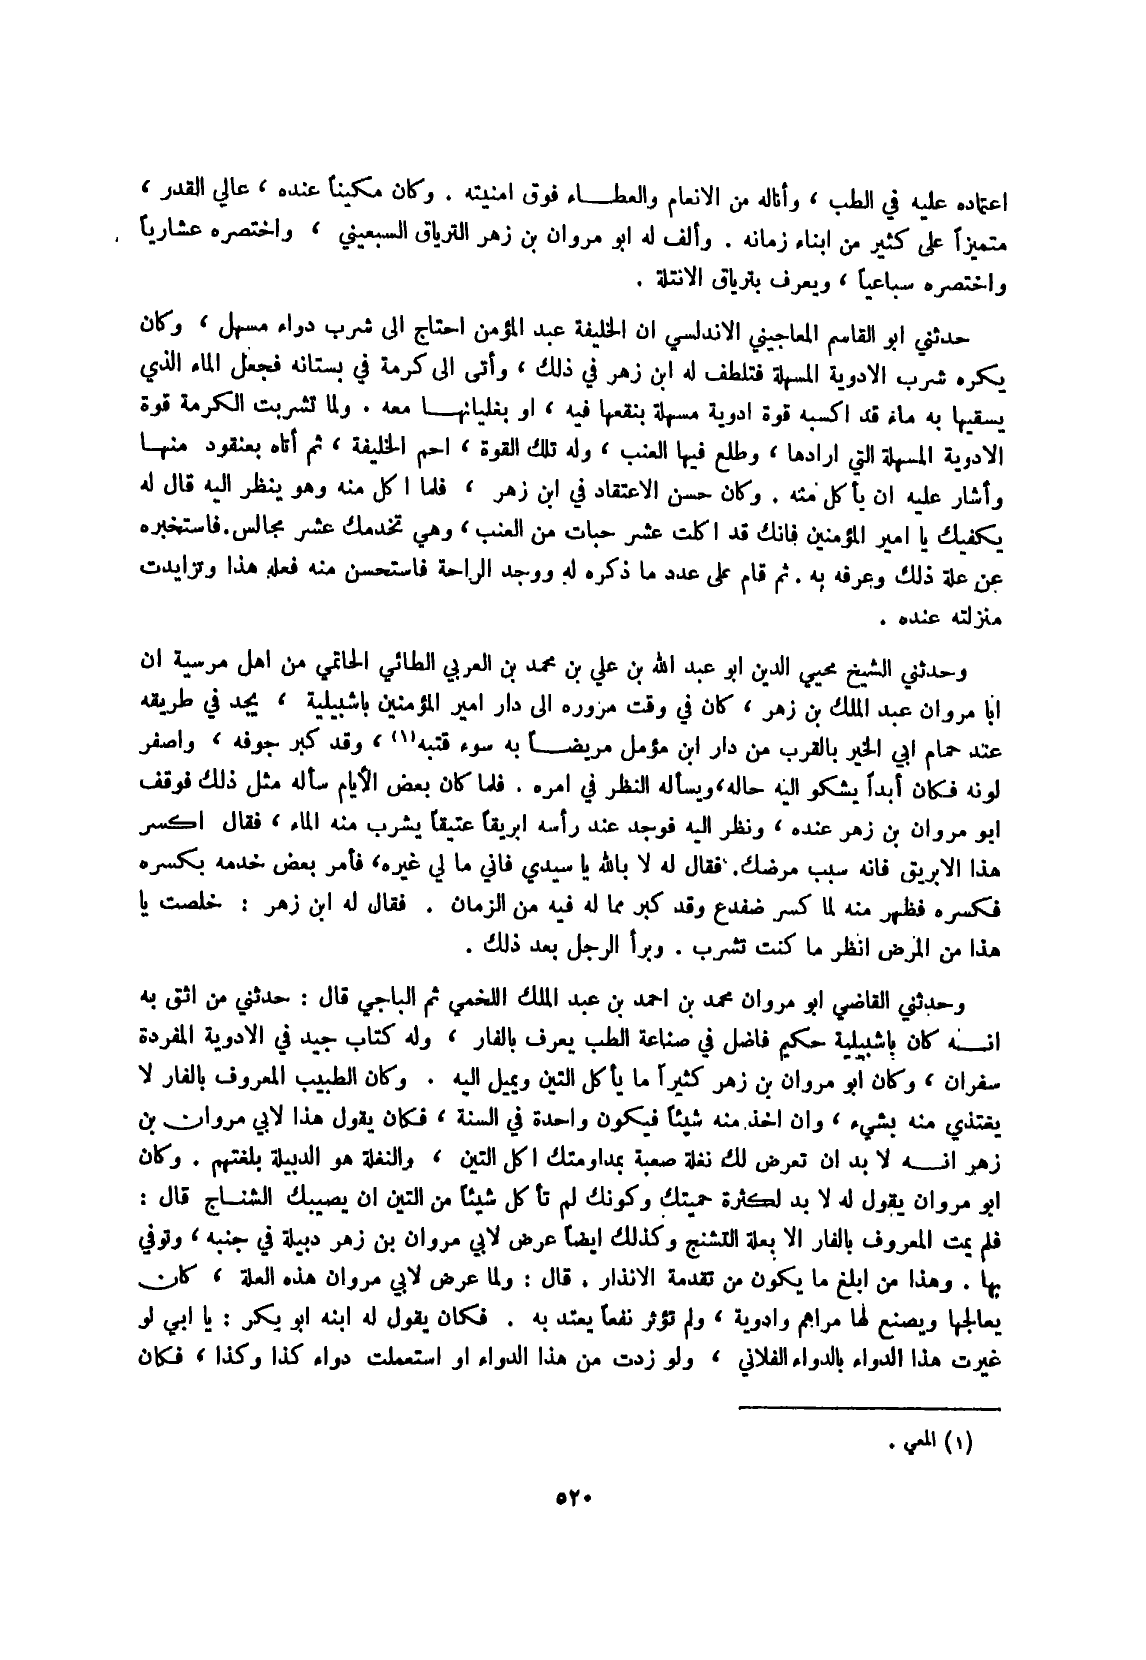 اعتماده عليه في الطب ، وأناله من الانعام والعطـــاء فوق امنيته . وكان مكيناً عنده ، عالي القدر ،
متميزاً على كثير من ابناء زمانه . وألف له ابو مروان بن زهر الترياق السبعيني ، واختصره عشارياً
واختصره سباعياً ، ويعرف بترياق الانتلة .
حدثني ابو القاسم المعاجيني الاندلسي ان الخليفة عبد المؤمن احتاج الى شرب دواء مسهل ، وكان
يكره شرب الادوية المسهلة فتلطف له ابن زهر في ذلك ، وأتى الى كرمة في بستانه فجعل الماء الذي
يسقيها به ماء قد اكسبه قوة ادوية مسهلة بنقعها فيه ، او بغليانهـــا معه . ولما تشربت الكرمة قوة
الادوية المسهلة التي ارادها ، وطلع فيها العنب ، وله تلك القوة ، احم الخليفة ، ثم أتاه بعنقود منهـا
وأشار عليه ان يأكل منه . وكان حسن الاعتقاد في ابن زهر ، فلما اكل منه وهو ينظر اليه قال له
يكفيك يا امير المؤمنين فانك قد اكلت عشر حبات من العنب ، وهي تخدمك عشر مجالس.فاستخبره
عن علة ذلك وعرفه به . ثم قام على عدد ما ذكره له ووجد الراحة فاستحسن منه فعله هذا وتزايدت
منزلته عنده .
وحدثني الشيخ محيي الدين ابو عبد الله بن علي بن محمد بن العربي الطائي الحاتمي من اهل مرسية ان
ابا مروان عبد الملك بن زهر ، كان في وقت مزوره الى دار امير المؤمنين باشبيلية ، يجد في طريقه
عند حمام ابي الخير بالقرب من دار ابن مؤمل مريضــاً به سوء قتبه(١) ، وقد كبر جوفه ، واصفر
لونه فكان أبداً يشكو اليه حاله،ويسأله النظر في امره . فلما كان بعض الأيام سأله مثل ذلك فوقف
ابو مروان بن زهر عنده ، ونظر اليه فوجد عند رأسه ابريقاً عتيقاً يشرب منه الماء ، فقال اكسر
هذا الابريق فانه سبب مرضك. فقال له لا بالله يا سيدي فاني ما لي غيره، فأمر بعض خدمه بكسره
فكسره فظهر منه لما كسر ضفدع وقد كبر مما له فيه من الزمان . فقال له ابن زهر : خلصت يا
هذا من المرض انظر ما كنت تشرب . وبرأ الرجل بعد ذلك .
وحدثني القاضي ابو مروان محمد بن احمد بن عبد الملك اللخمي ثم الباجي قال : حدثني من اثق به
انـــه كان باشبيلية حكيم فاضل في صناعة الطب يعرف بالفار ، وله كتاب جيد في الادوية المفردة
سفران ، وكان ابو مروان بن زهر كثيراً ما يأكل التين ويميل اليه . وكان الطبيب المعروف بالفار لا
يغتذي منه بشيء ، وان اخذ منه شيئاً فيكون واحدة في السنة ، فكان يقول هذا لابي مروان بن
زهر انـــه لا بد ان تعرض لك نغلة صعبة بمداومتك اكل التين ، والنغلة هو الدبيلة بلغتهم . وكان
ابو مروان يقول له لا بد لكثرة حميتك وكونك لم تأكل شيئاً من التين ان يصيبك الشناج قال :
فلم يمت المعروف بالفار الا بعلة التشنج وكذلك ايضاً عرض لابي مروان بن زهر دبيلة في جنبه ، وتوفي
بها . وهذا من ابلغ ما يكون من تقدمة الانذار . قال : ولما عرض لابي مروان هذه العلة ، كان
يعالجها ويصنع لها مراهم وادوية ، ولم تؤثر نفعاً يعتد به . فكان يقول له ابنه ابو بكر : يا ابي لو
غيرت هذا الدواء بالدواء الفلاني ، ولو زدت من هذا الدواء او استعملت دواء كذا وكذا ، فكان
(١) المعي .
٥٢٠